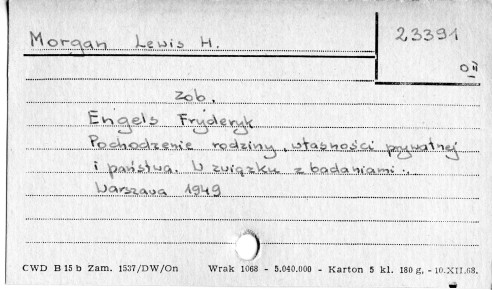 Morgan Lewis H.
23391
zob.
Engels Fryderyk
Pochodzenie rodziny, własności prywatnej
i państwa. W związku z badaniami..
Warszawa 1949
CWD B 15 b Zam. 1537/DW/On Wrak 1068 - 5.040.000 - Karton 5 kl. 180 g. - 10.XII.68.